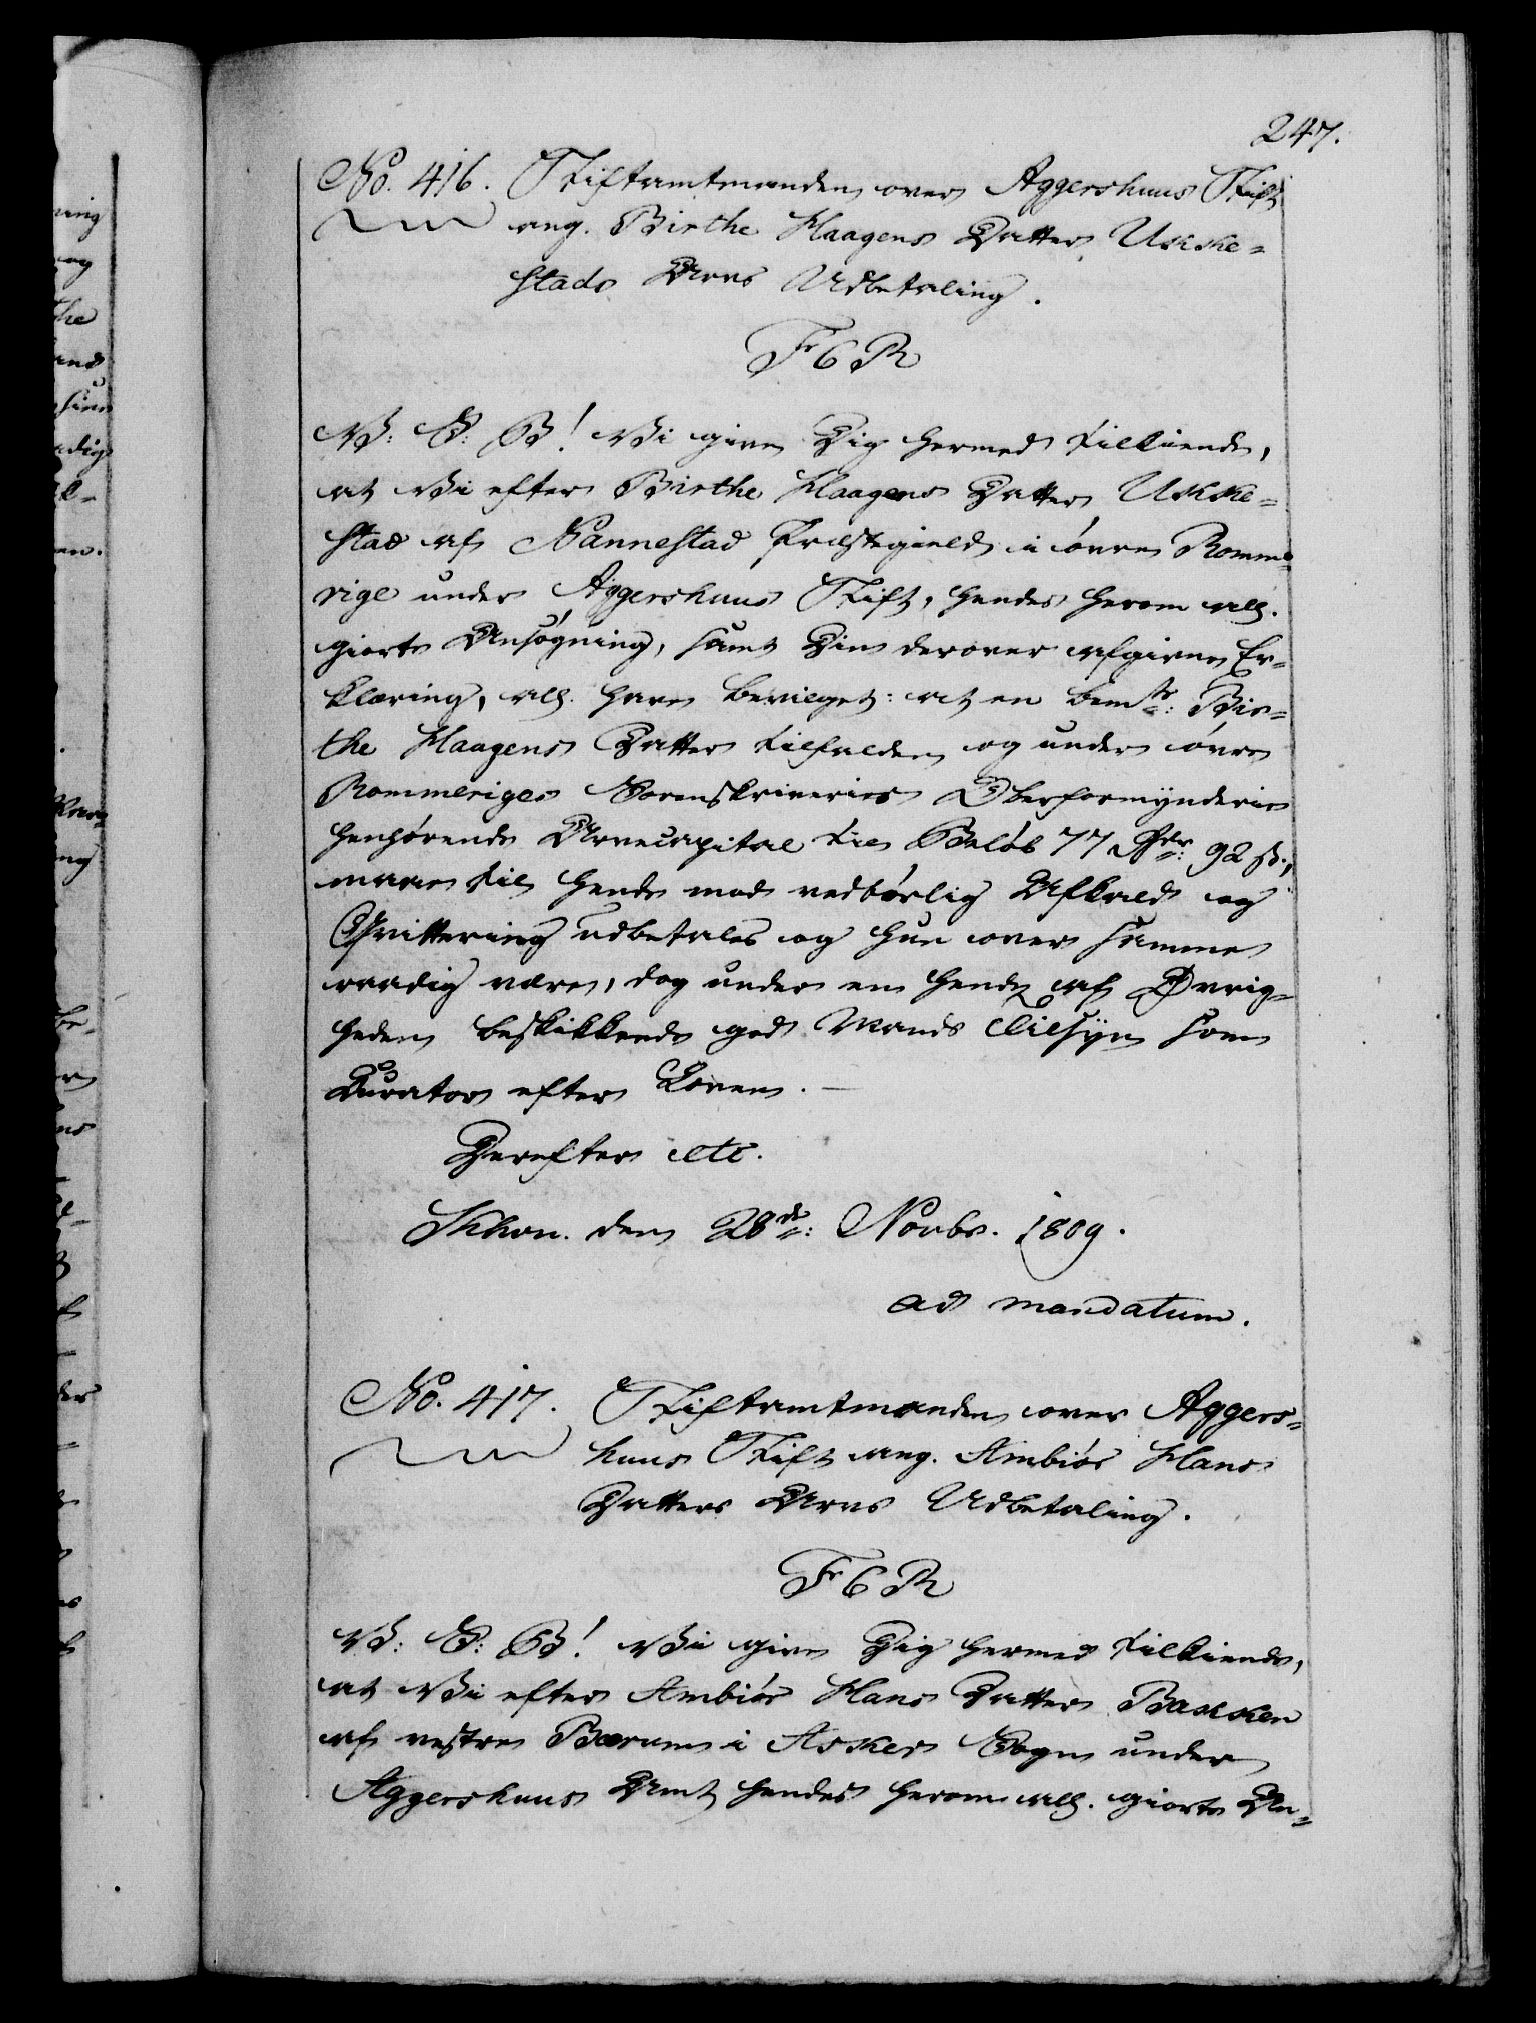 247.
No. 416. Stiftamtmanden over Aggershuus Stift
ang. Birthe Haagens Datter Ukke=
stads Arvs Udbetaling.
F 6 R
V: S: G! Vi give Dig hermed tilkiende,
at Vi efter Birthe Haagens Datter Ukke=
stad af Nannestad Præstegield i øvre Romme=
rige under Aggershuus Stift, hendes herom all.
giorte Ansøgning, samt Din derover afgivne Er=
klæring, all. have bevilget: at en bemte: Bir=
the Haagens Datter tilfalden og under øvre
Rommeriges Sorenskriveries Oberformynderie
henhørende Arvecapital til Beløb 77 Rdr: 92 s.,
maae til hende mod vedbørlig Afkald og
Qvittering udbetales og hun over samme
raadig være, dog under en hende af Øvrig=
heden beskikkende god Mands Tilsyn som
Curator efter Loven.
Derefter etc.
Khvn. den 28de: Novbr. 1809.
ad mandatum.
No. 417. Stiftamtmanden over Aggers=
huus Stift ang. Ambiør Hans
Datters Arvs Udbetaling.
F 6 R
V: S: G! Vi give Dig hermed tilkiende,
at Vi efter Ambiør Hans Datter Bakken
af vestre Bærum i Asker Sogn under
Aggershuus Amt hendes herom all. giorte An=